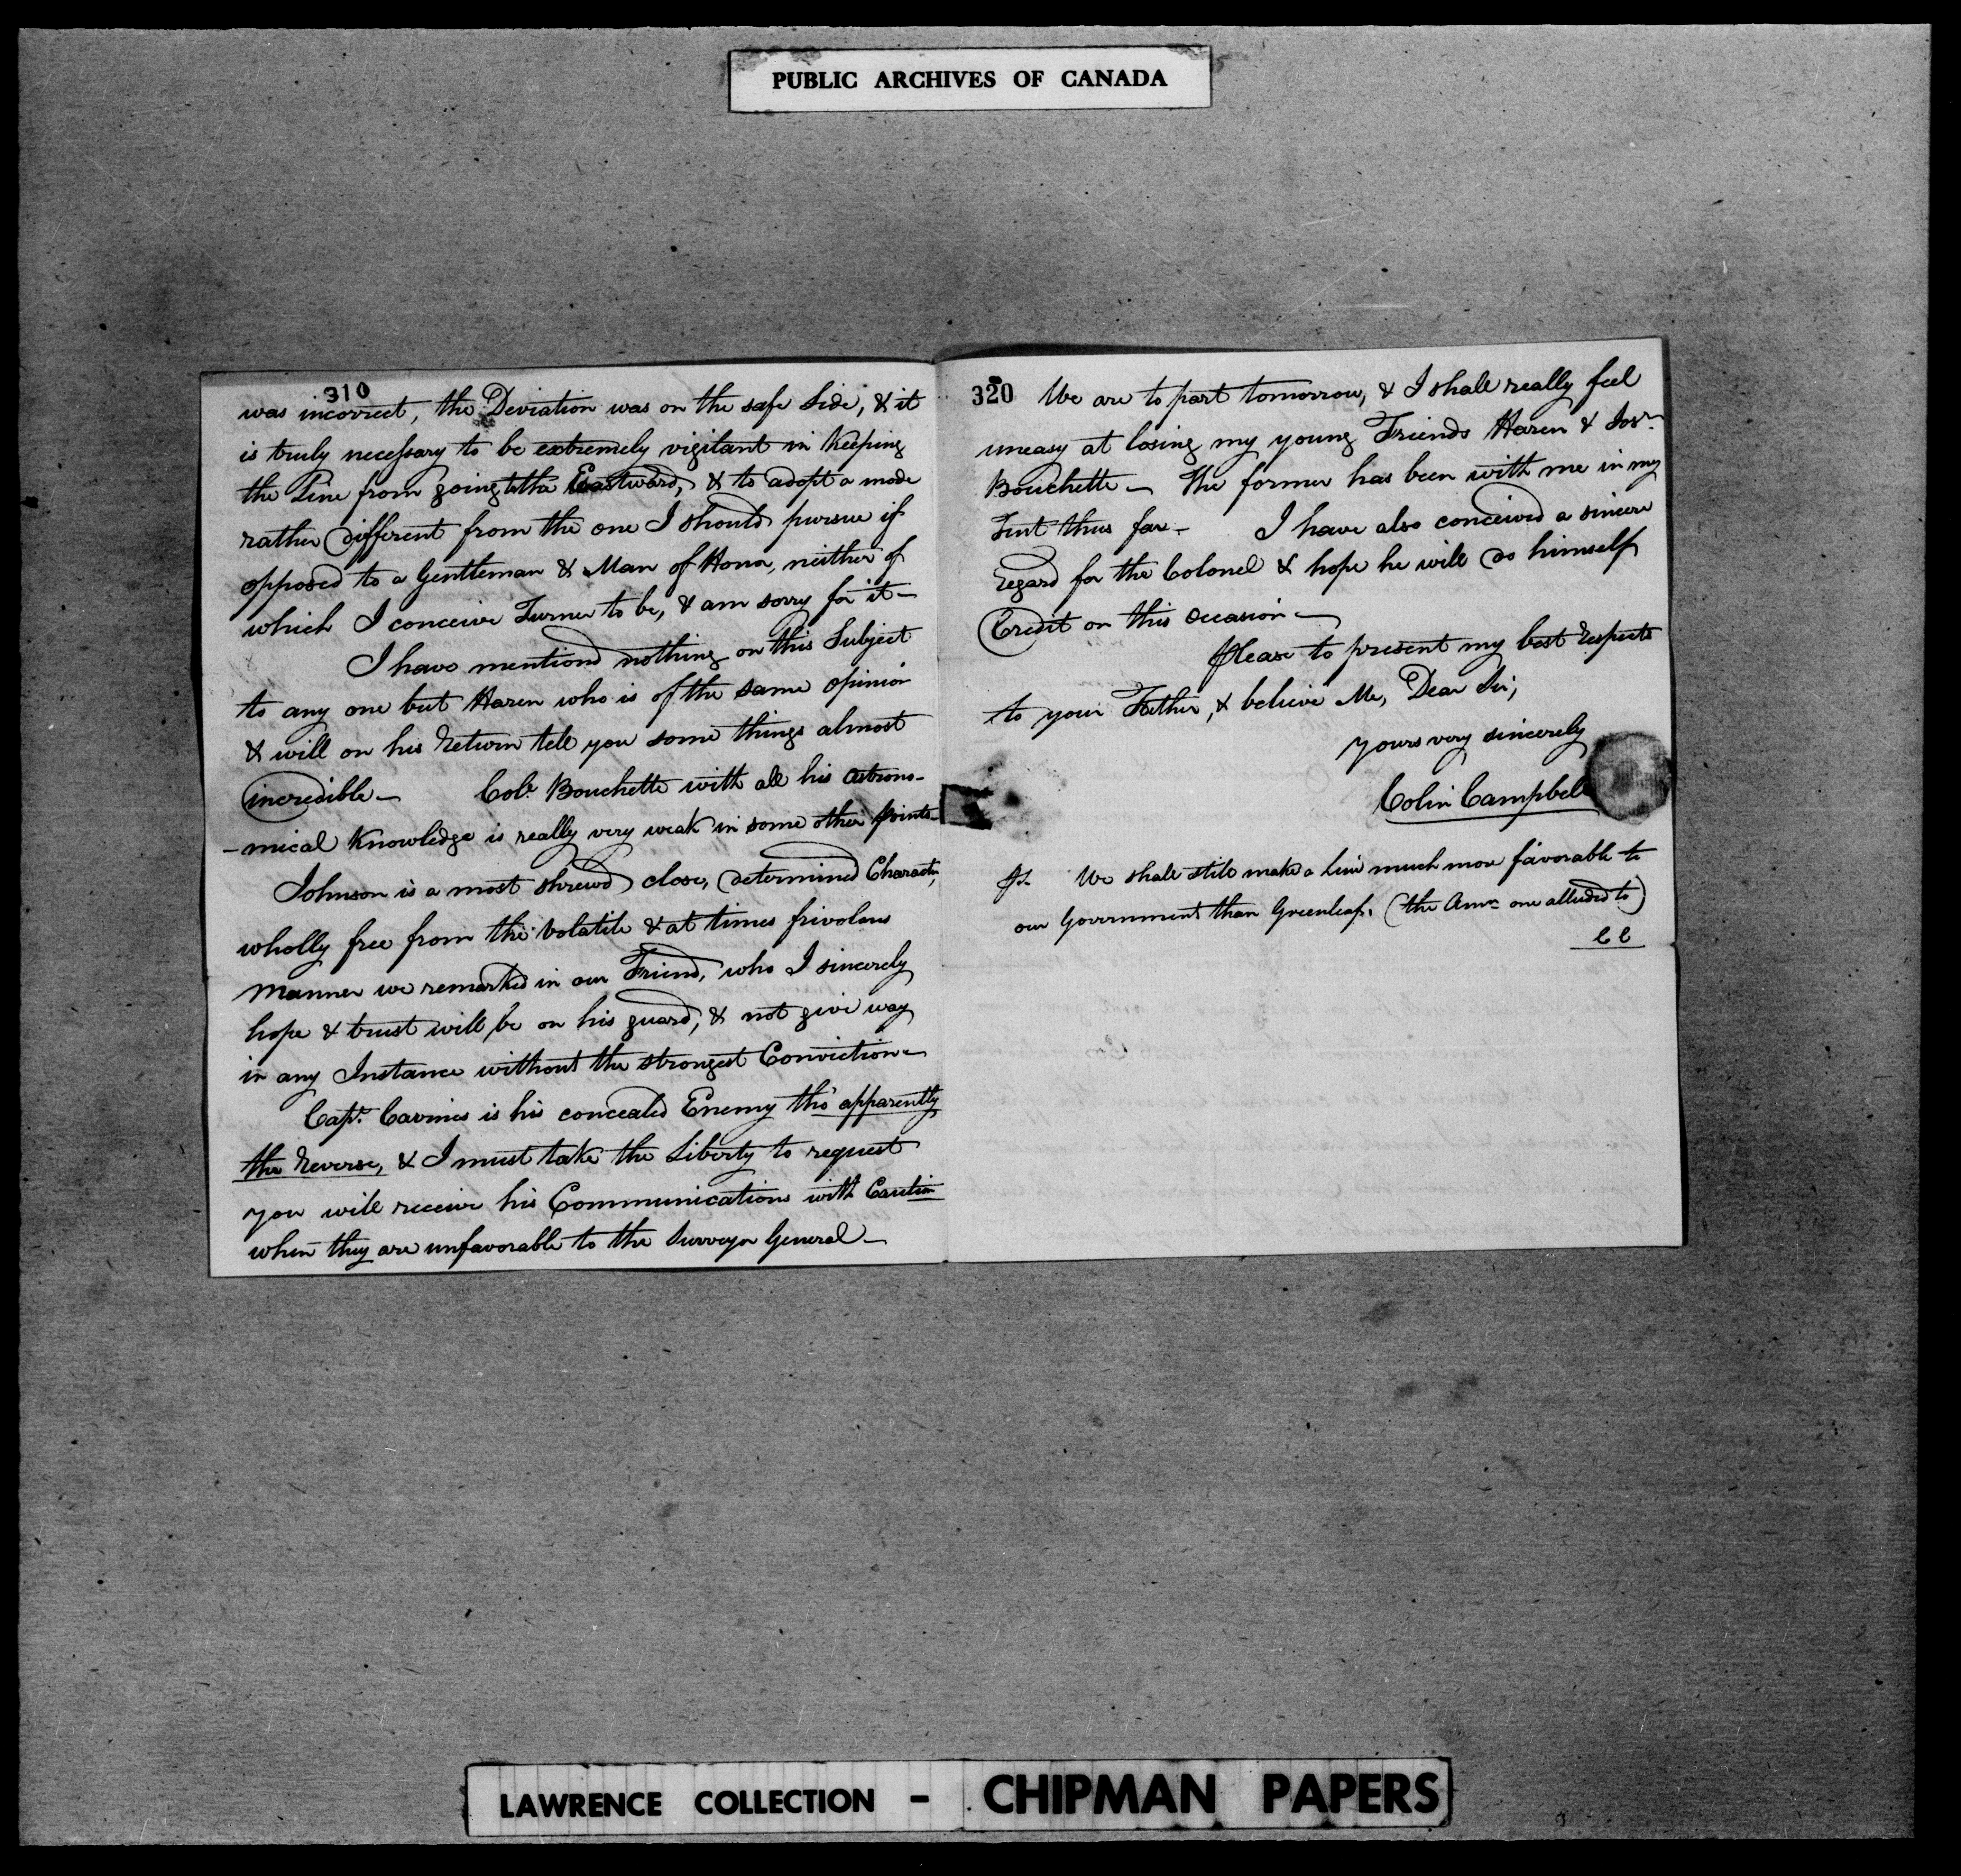 PUBLIC ARCHIVES OF CANADA
310
was incorrect, the Deviation was on the safe Side, & it
is truly necessary to be extremely vigilant in Keeping
the Line from going to the Eastward, & to adopt a mode
rather different from the one I should pursue if
opposed to a Gentleman & Man of Honor, neither of
which I conceive Turner to be, & am sorry for it—
I have mentiond nothing on this Subject
to any one but Haren who is of the same opinion
& will on his Return tell you some things almost
incredible— Col. Bouchette with all his astrono-
-mical Knowledge is really very weak in some other points—
Johnson is a most shrewd, close, determined Character,
wholly free from the volatile & at times frivolous
manner we remarked in our Friend, who I sincerely
hope & trust will be on his guard, & not give way
in any Instance without the strongest Conviction—
Capt. is his concealed Enemy tho' apparently
the Reverse, & I must take the Liberty to request
you will receive his Communications with Caution
when they are unfavorable to the Surveyor General—
320
We are to part tomorrow, & I shall really feel
uneasy at losing my young Friends Haren & Josh.
Bouchette— The former has been with me in my
Tent thus far— I have also conceived a sincere
Regard for the Colonel & hope he will do himself
Credit on this Occasion—
Please to present my best Respects
to your Father, & believe Me, Dear Sir,
Yours very sincerely
Colin Campbell
Ps. We shall still make a Line much more favorable to
our Government than Greenleafs, (the Amn. one alluded to)
CC
LAWRENCE COLLECTION - CHIPMAN PAPERS